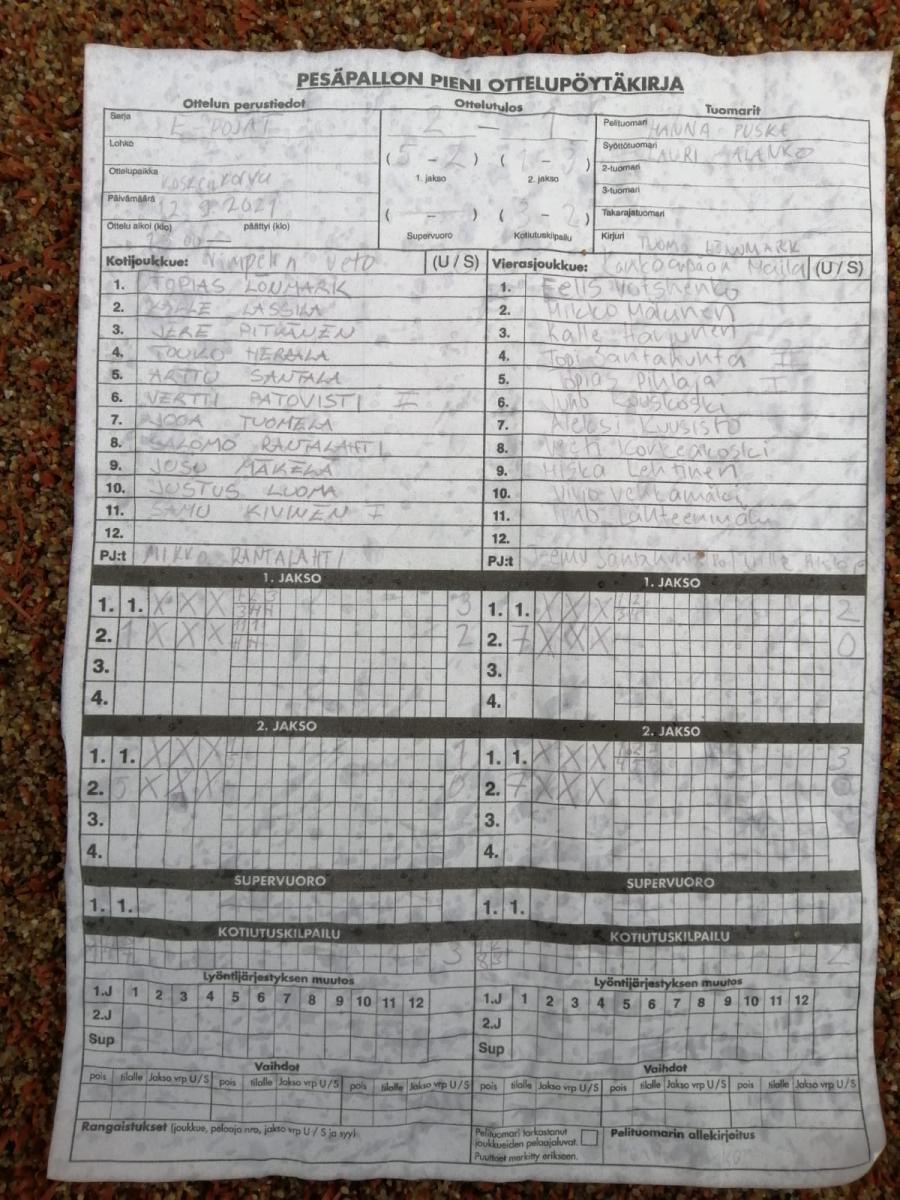 PESÄPALLON PIENI OTTELUPÖYTÄKIRJA
Ottelun perustiedot Ottelutulos Tuomarit
Sarja E POJAT
Lohko
Ottelupaikka Koskenkorva
Päivämäärä 12.9.2021
Ottelu alkoi (klo) päättyi (klo)
2 – 1
(5 – 2) (1 – 3)
1. jakso 2. jakso
( – ) (3 – 2)
Supervuoro Kotiutuskilpailu
Pelituomari HANNA PUSKA
Syöttötuomari LAURI ALANKO
2-tuomari
3-tuomari
Takarajatuomari
Kirjuri TUOMO LÖNNMARK
Kotijoukkue: Vimpelin Veto (U / S)
1. TOPIAS LÖNMARK
2. KALLE LASSILA
3. JERE PITKÄNEN
4. TOUKO HERRALA
5. ARTTU SANTALA
6. VERTTI PATOVISTI II
7. JOOA TUOMELA
8. SALOMO RANTALAHTI
9. JUSU MÄKELÄ
10. JUSTUS LUOMA
11. SAMU KIVINEN I
12.
PJ:t MIKKO RANTALAHTI
Vierasjoukkue: Kankaanpään Maila (U / S)
1. Eelis Votshenko
2. Mikko Malunen
3. Kalle Harjunen
4. Topi Santahuhta II
5. Topias Pihlaja I
6. Juho Kouskoski
7. Aleksi Kuusisto
8. Veeti Korkeakoski
9. Hiska Lehtinen
10. Vehkamäki
11. Lähteenmäki
12.
PJ:t Teemu Ville
1. JAKSO 1. JAKSO
1. 1. X X X 3 1. 1. X X X 2
2. 1 X X X 2 2. 7 X X X 0
3. 3.
4. 4.
2. JAKSO 2. JAKSO
1. 1. X X X 1 1. 1. X X X 3
2. 5 X X X 0 2. 7 X X X 0
3. 3.
4. 4.
SUPERVUORO SUPERVUORO
1. 1. 1. 1.
KOTIUTUSKILPAILU KOTIUTUSKILPAILU
3 2
Lyöntijärjestyksen muutos Lyöntijärjestyksen muutos
1.J 1 2 3 4 5 6 7 8 9 10 11 12 1.J 1 2 3 4 5 6 7 8 9 10 11 12
2.J 2.J
Sup Sup
Vaihdot Vaihdot
pois tilalle Jakso vrp U/S pois tilalle Jakso vrp U/S pois tilalle Jakso vrp U/S pois tilalle Jakso vrp U/S pois tilalle Jakso vrp U/S pois tilalle Jakso vrp U/S
Rangaistukset (joukkue, pelaaja nro, jakso vrp U / S ja syy)
Pelituomari tarkastanut
joukkueiden pelaajaluvat.
Puutteet merkitty erikseen.
Pelituomarin allekirjoitus